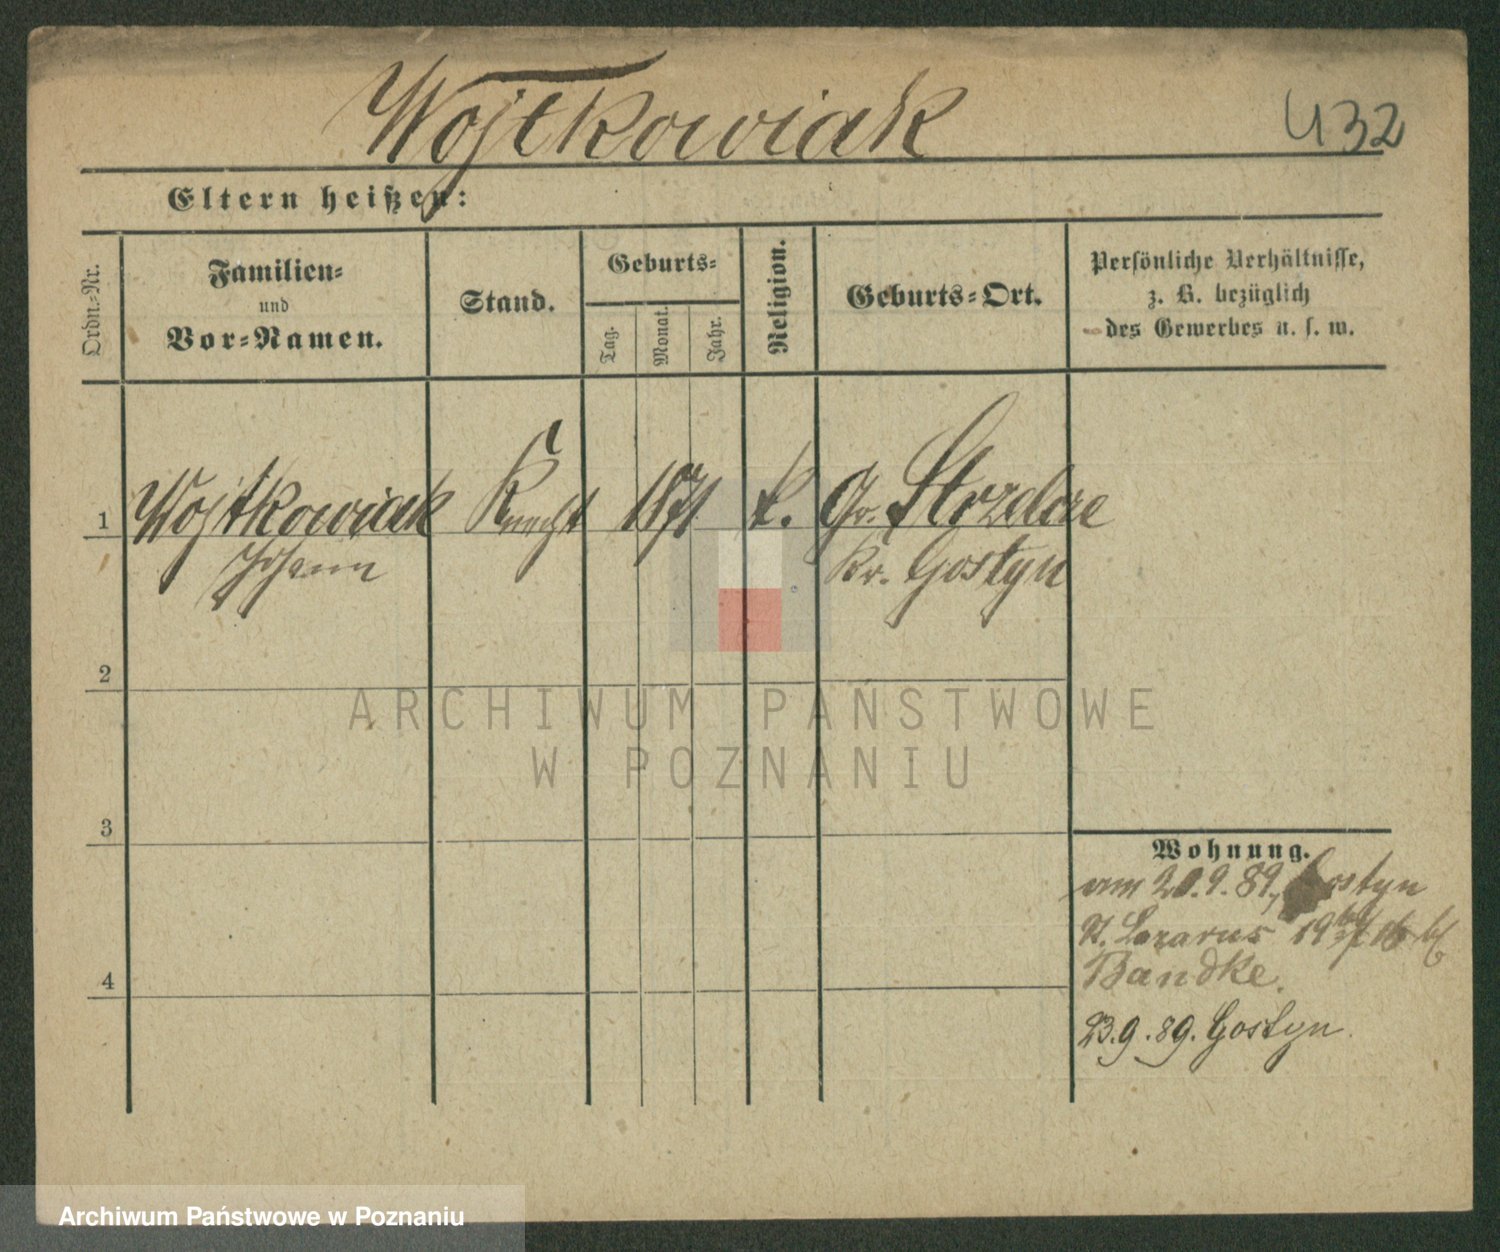 Wojtkowiak
432
Eltern heißen:
Ordn.-Nr.
Familien-
und
Vor-Namen.
Stand.
Geburts-
Tag.
Monat.
Jahr.
Religion.
Geburts-Ort.
Persönliche Verhältnisse,
z. B. bezüglich
des Gewerbes u. s. w.
1
Wojtkowiak Knecht 1871 k. Gr. Strzelcze
Johann Kr. Gostyn
2
ARCHIWUM PAŃSTWOWE
W POZNANIU
3
Wohnung.
am 20.9.89, Gostyn
St. Lazarus 19
Bandke.
4
23.9.89. Gostyn.
Archiwum Państwowe w Poznaniu